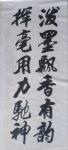 泼墨飘香有韵
挥毫用力驰神